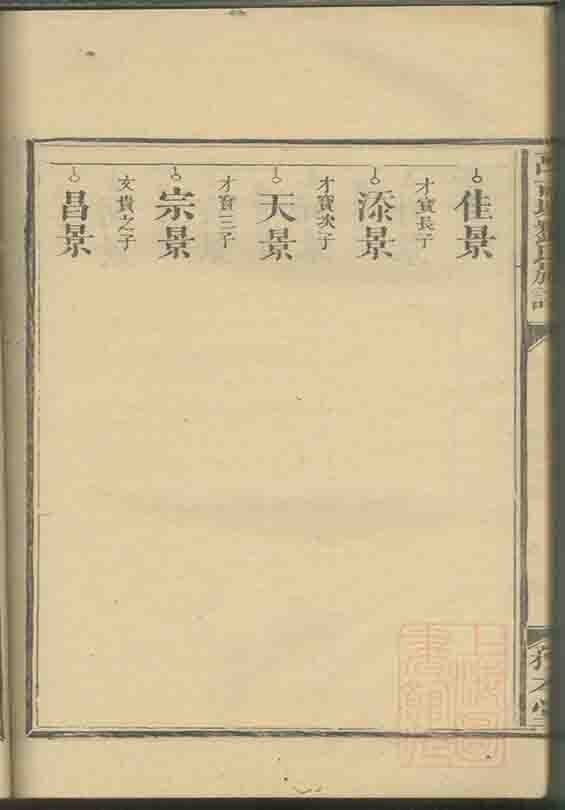 佳景
才寳長子
添景
才寳次子
天景
才寳三子
宗景
文貴之子
昌景
上海圖
書館藏